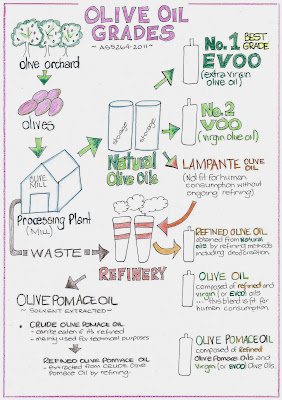 OLIVE OIL
GRADES
~ AS5264-2011 ~
No.1 BEST
GRADE
EVOO
(extra virgin
olive oil)
olive orchard
olives
storage
storage
Natural
Olive Oils
No.2
VOO
(virgin olive oil)
LAMPANTE OLIVE
OIL
(Not fit for human
consumption without
ongoing refining)
OLIVE
MILL
Processing Plant
(Mill)
WASTE
REFINERY
REFINED OLIVE OIL
obtained from Natural
oils by refining methods
including deodorisation.
OLIVE OIL
composed of refined and
virgin (or EVOO) oils
this blend is fit for
human consumption.
OLIVE POMACE OIL
~ SOLVENT EXTRACTED ~
CRUDE OLIVE POMACE OIL
- mainly used for technical purposes
REFINED OLIVE POMACE OIL
- extracted from Crude Olive
Pomace Oil by refining.
OLIVE POMACE OIL
composed of Refined
Olive Pomace Oils and
Virgin (or EVOO) Olive Oils.